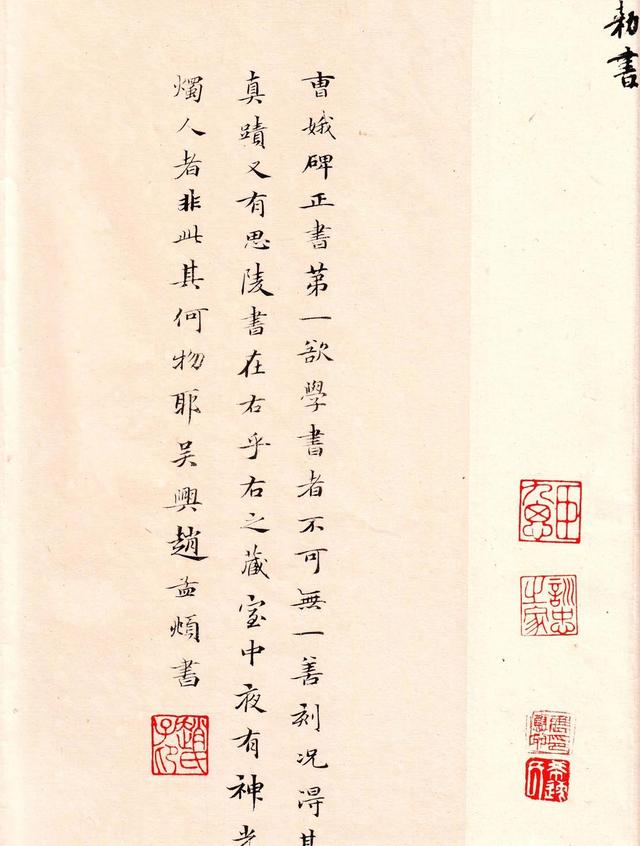 勑書
曹娥碑正書第一欲學書者不可無一善刻况得其
真蹟又有思陵書在右乎右之藏室中夜有神光
燭人者非此其何物耶吳興趙孟頫書
訓忠之家
趙氏子昂